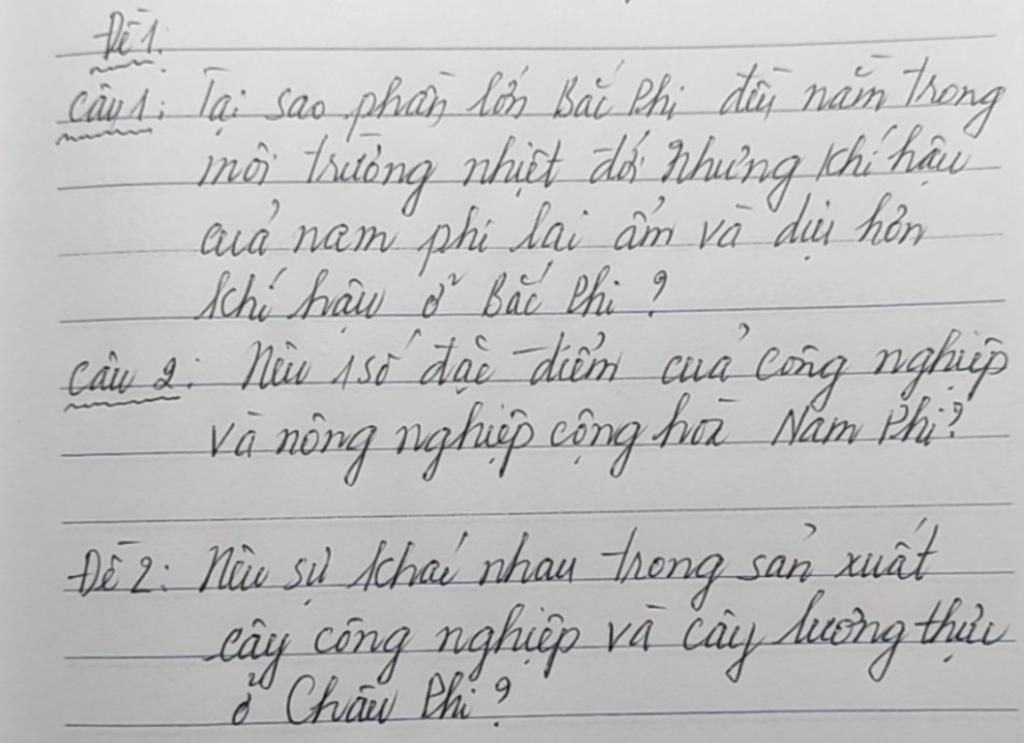 Đề 1:
Câu 1: Tại sao phần lớn Bắc Phi đều nằm trong
môi trường nhiệt đới nhưng khí hậu
của nam phi lại ẩm và dịu hơn
khí hậu ở Bắc Phi?
Câu 2: Nêu 1 số đặc điểm của công nghiệp
và nông nghiệp cộng hoà Nam Phi?
Đề 2: Nêu sự khác nhau trong sản xuất
cây công nghiệp và cây lương thực
ở Châu Phi?